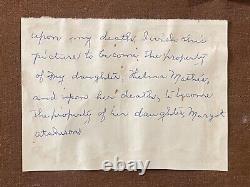 upon my death, I wish this
picture to become the property
of my daughter, Thelma Mathis,
and upon her death, to become
the property of her daughter, Margot
Atkinson